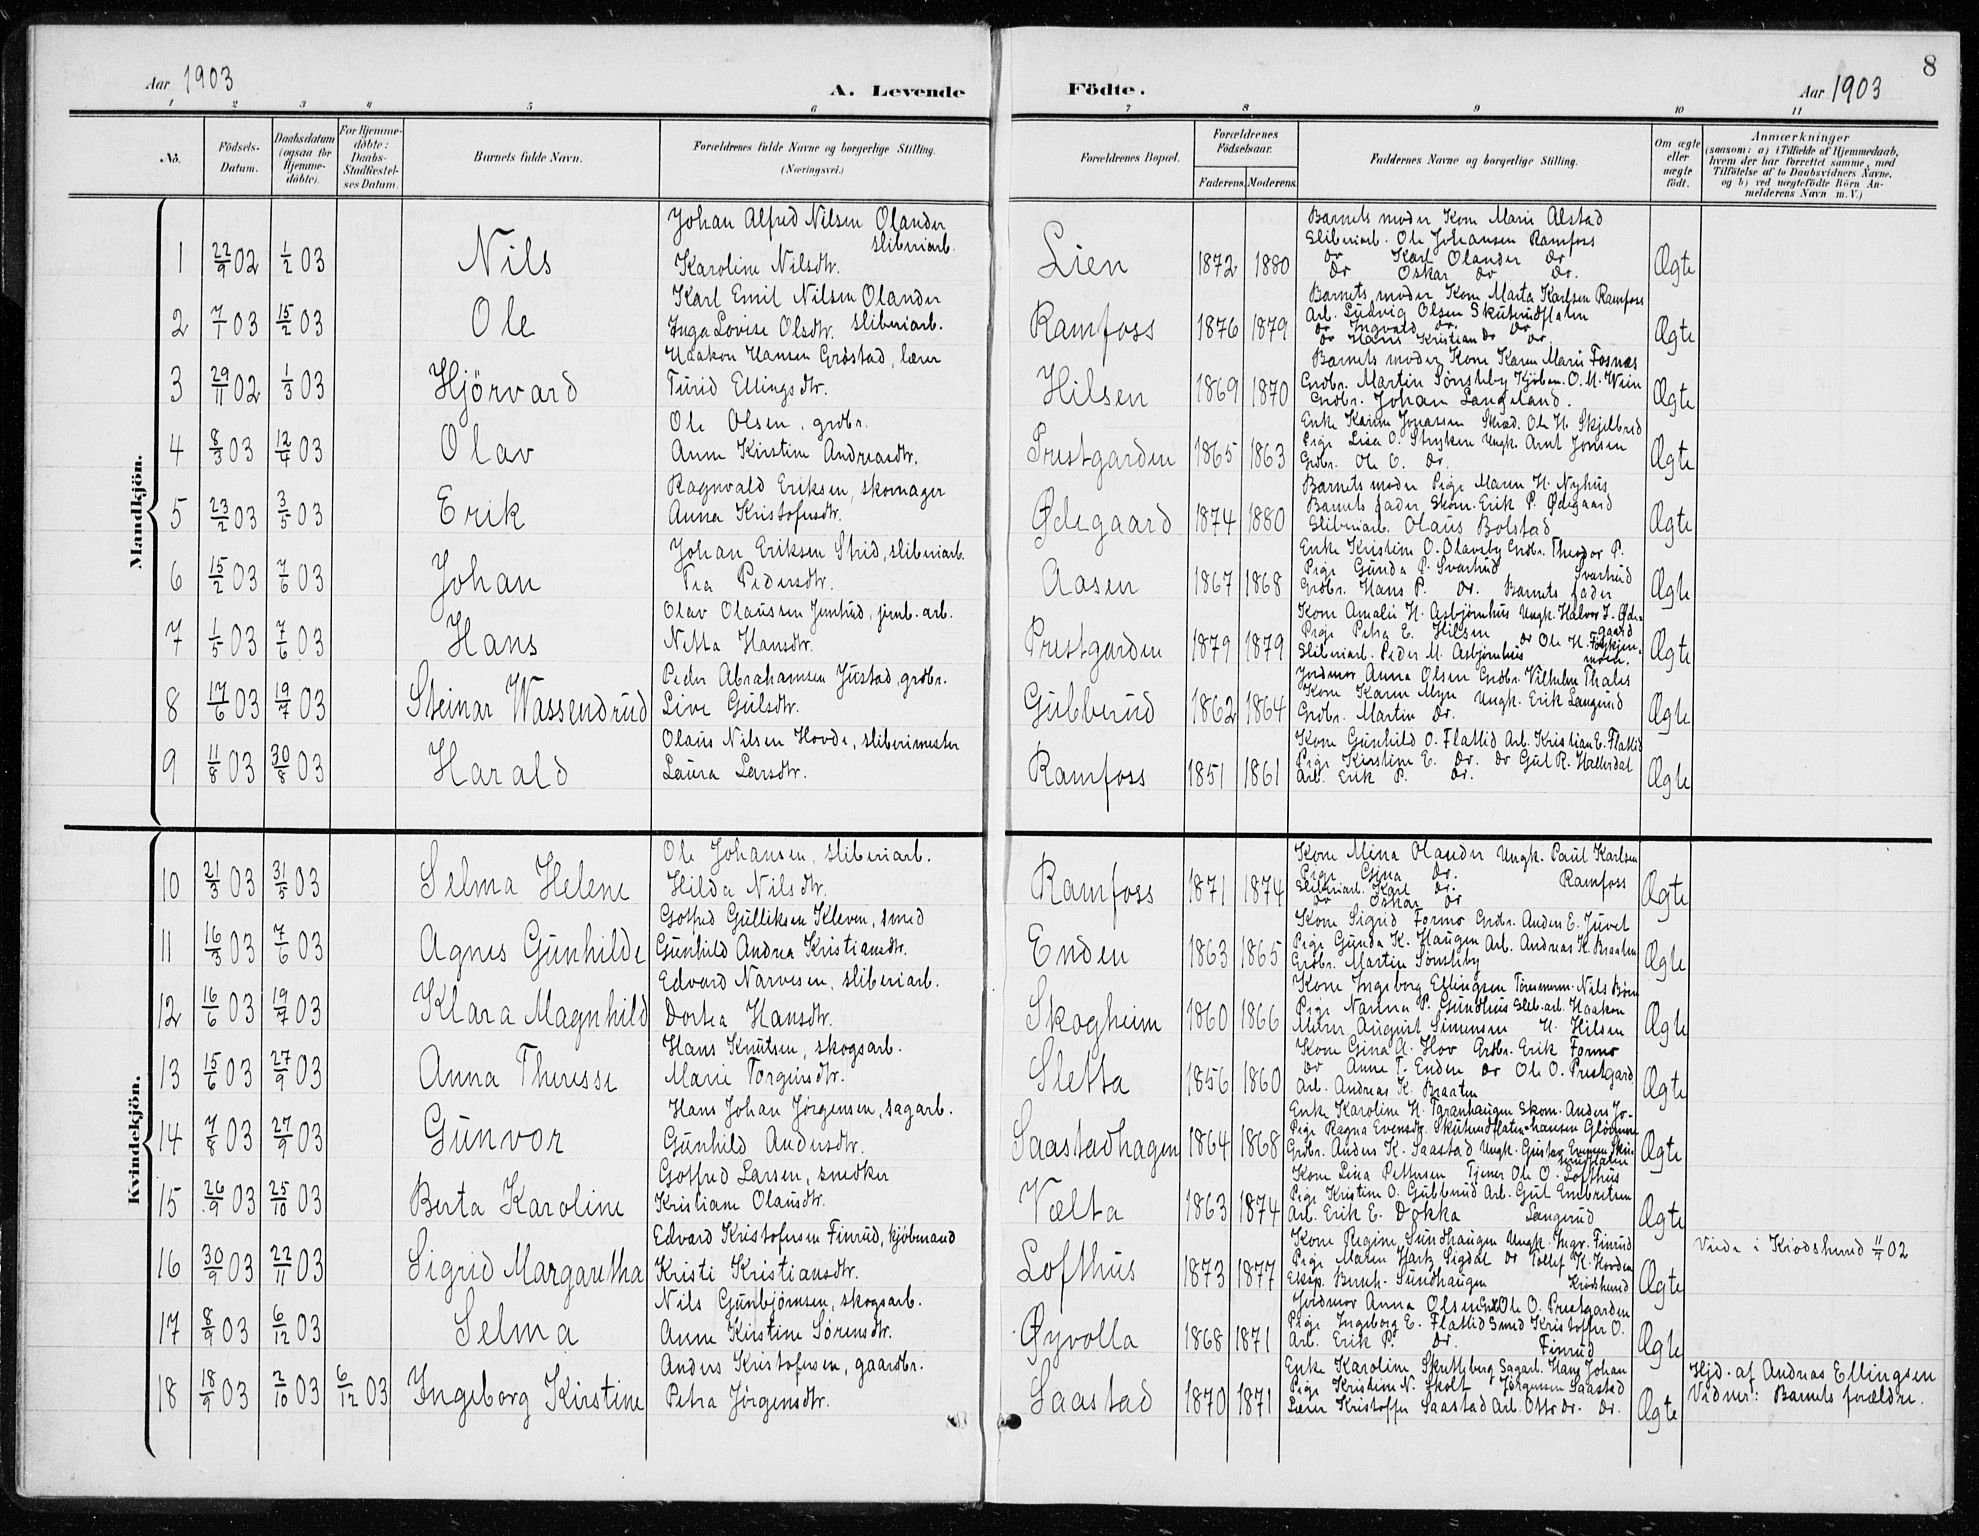 8
Aar 1903
A. Levende Födte.
Aar 1903
1 2 3 4 5 6 7 8 9 10 11
No.
Födsels-Datum.
Daabsdatum (ogsaa for Hjemme-döbte).
For Hjemme-döbte: Daabs-Stadfæstel-ses Datum.
Barnets fulde Navn.
Forældrenes fulde Navne og borgerlige Stilling. (Næringsvei.)
Forældrenes Bopæl.
Forældrenes Födselsaar.
Faderens. Moderens.
Faddernes Navne og borgerlige Stilling.
Om ægte eller uægte födt.
Anmærkninger
(saasom: a) i Tilfælde af Hjemmedaab, hvem der har forrettet samme, med Tilföielse af to Daabsvidners Navne, og b) ved uægtefödte Börn Anmelderens Navn m. V.)
Mandkjön.
1 22/9 02 1/2 03 Nils
Johan Alfred Nilsen Olander
sliberiarb.
Karoline Nilsdtr.
Lien 1872 1880
Barnets moder Kone Marie Alstad
Sliberiarb. Ole Johansen Ramfoss
Do Karl Olander do
Do Oskar do do.
Ægte
2 7/1 03 15/2 03 Ole
Karl Emil Nilsen Olander
Inga Lovise Olsdtr. sliberiarb.
Ramfoss 1876 1879
Barnets moder Kone Marta Karlsen Ramfoss
Arb. Ludvig Olsen Skuterudflaten
do Ingvald do. do
do Hans Kristian do do.
Ægte
3 29/11 02 1/3 03 Hjörvard
Haakon Hansen Gröstad, lærer
Turid Ellingsdtr.
Hilsen 1869 1870
Barnets moder Kone Karen Marie Fosnæs
Grdbr. Martin Sønsteby Kjöbm. O. M. Wein
Grdbr. Johan Langeland.
Ægte
4 8/3 03 12/4 03 Olav
Ole Olsen, grdbr.
Anne Kirstine Andreasdtr.
Prestgarden 1865 1863
Enke Karen Jonassen Skræd. Ole H. Skjelbred
Pige Lisa O. Stryken Ungk. Arnt Jonsen
Grdbr. Ole O. Do.
Ægte
5 23/2 03 3/5 03 Erik
Ragnvald Eriksen, skomager
Anna Kristofersdtr.
Ødegaard 1874 1880
Barnets moder Pige Maren H. Nyhus
Barnets fader Skom. Erik P. Ødegaard
Sliberiarb. Olaus Bolstad
Ægte
6 15/2 03 7/6 03 Johan
Johan Eriksen Strid, sliberiarb.
Tea Pedersdtr.
Aasen 1867 1868
Enke Kristine O. Olavsby Grdbr. Theodor P.
Pige Gunda P. Svartrud Svartrud
Grdbr. Hans P. Do. Barnets fader
Ægte
7 1/5 03 7/6 03 Hans
Olav Olaussen Jentud, jernb. arb.
Netta Hansdtr.
Prestgarden 1879 1879
Kone Amalie H. Asbjørnhus Ungk. Halvor I. Øde-
Pige Petra E. Hilsen do Ole H. gaard
Sliberiarb. Peder M. Asbjørnhus moen.
Ægte
8 17/6 03 19/7 03 Steinar Wassendrud
Peder Abrahamsen Justad, grdbr.
Live Gulsdtr.
Gubberud 1862 1864
Jordmor Anna Olsen Grdbr. Vilhelm Thales
Kone Karen Myre Ungk. Erik Langerud
Grdbr. Martin Do.
Ægte
9 11/8 03 30/8 03 Harald
Olaus Nilsen Hovde, sliberimester
Laura Larsdtr.
Ramfoss 1851 1861
Kone Gunhild O. Flattid Arb. Kristian E. Flattid
Pige Kirstine E. Do. Do Gul R. Hallerdal
Arb. Erik P. Do.
Ægte
Kvindekjön.
10 21/3 03 31/5 03 Selma Helene
Ole Johansen, sliberiarb.
Hilda Nilsdtr.
Ramfoss 1871 1874
Kone Mina Olander Ungk. Paul Karlsen
Pige Gina Do. Ramfoss
Sliberiarb. Karl do.
Do Oskar do
Ægte
11 16/3 03 7/6 03 Agnes Gunhilde
Gotfred Gulliksen Kleven, smed
Gunhild Andrea Kristiansdtr.
Enden 1863 1865
Kone Sigrid Formo Grdbr. Anders E. Juvet
Pige Gunda K. Haugen Arb. Andreas K. Braaten
Grdbr. Martin Sønsteby
Ægte
12 16/6 03 19/7 03 Klara Magnhild
Edvard Narvesen, sliberiarb.
Dortea Hansdtr.
Skogheim 1860 1866
Kone Ingeborg Ellingsen Tömmerm. Nils Børn
Pige Nanna P. Gundhus Slib. arb. Haakon
August Simensen H. Hilsen
Ægte
13 15/6 03 27/9 03 Anna Theresse
Hans Knutsen, skogsarb.
Marie Torgersdtr.
Sletta 1856 1860
Kone Gina A. Hov Grdbr. Erik Formo
Do Anne T. Enden do Ole O. Prestgard
Arb. Andreas K. Braaten
Ægte
14 7/8 03 27/9 03 Gunvor
Hans Johan Jørgensen, sagarb.
Gunhild Andersdtr.
Saastadhagen 1864 1868
Enke Karoline H. Tgranhaugen Skom. Anders Jo-
Pige Ragna Evensdtr. Skuterudflaten hansen Glömmen
Grdbr. Anders K. Saastad Ungk. Gustav Evensen Sku-
terudflaten
Ægte
15 26/9 03 25/10 03 Berta Karoline
Gotfred Larsen, snedker
Kristiane Olausdtr.
Vælta 1863 1874
Kone Lina Pettersen Tjener Ole O. Lofthus
Pige Kristine O. Gubberud Arb. Gul Embretsen
Arb. Erik E. Dokka Langerud
Ægte
16 30/9 03 22/11 03 Sigrid Margaretha
Edvard Kristofersen Finrud, kjöbmand
Kristi Kristiansdtr.
Lofthus 1873 1877
Kone Regine Sundhaugen Ungk. Ingv. Finrud
Pige Maren Hartz Sigdal do Tollef K. Hovden
Eksp. Bernh. Sundhaugen Krödsherred
Ægte
Viede i Krödsherred 11/7 02
17 8/9 03 6/12 03 Selma
Nils Gunbjørnsen, skogsarb.
Anne Kirstine Sørensdtr.
Øyvolla 1868 1871
Jordmor Anna Olsen Ole O. Prestgarden
Pige Ingeborg E. Flattid Smed Kristoffer O.
Arb. Erik P. Do. Finrud
Ægte
18 18/9 03 2/10 03 6/12 03 Ingeborg Kirstine
Anders Kristofersen, gaardbr.
Petra Jörgensdtr.
Saastad 1870 1871
Enke Karoline Skretteberg Sagarb. Hans Johan
Pige Kristine N. Skolt Jörgensen Saastad
Lærer Kristoffer Saastad Arb. Otto do. do.
Ægte
Hjd. af Andreas Ellingsen
Vidner: Barnets forældre.